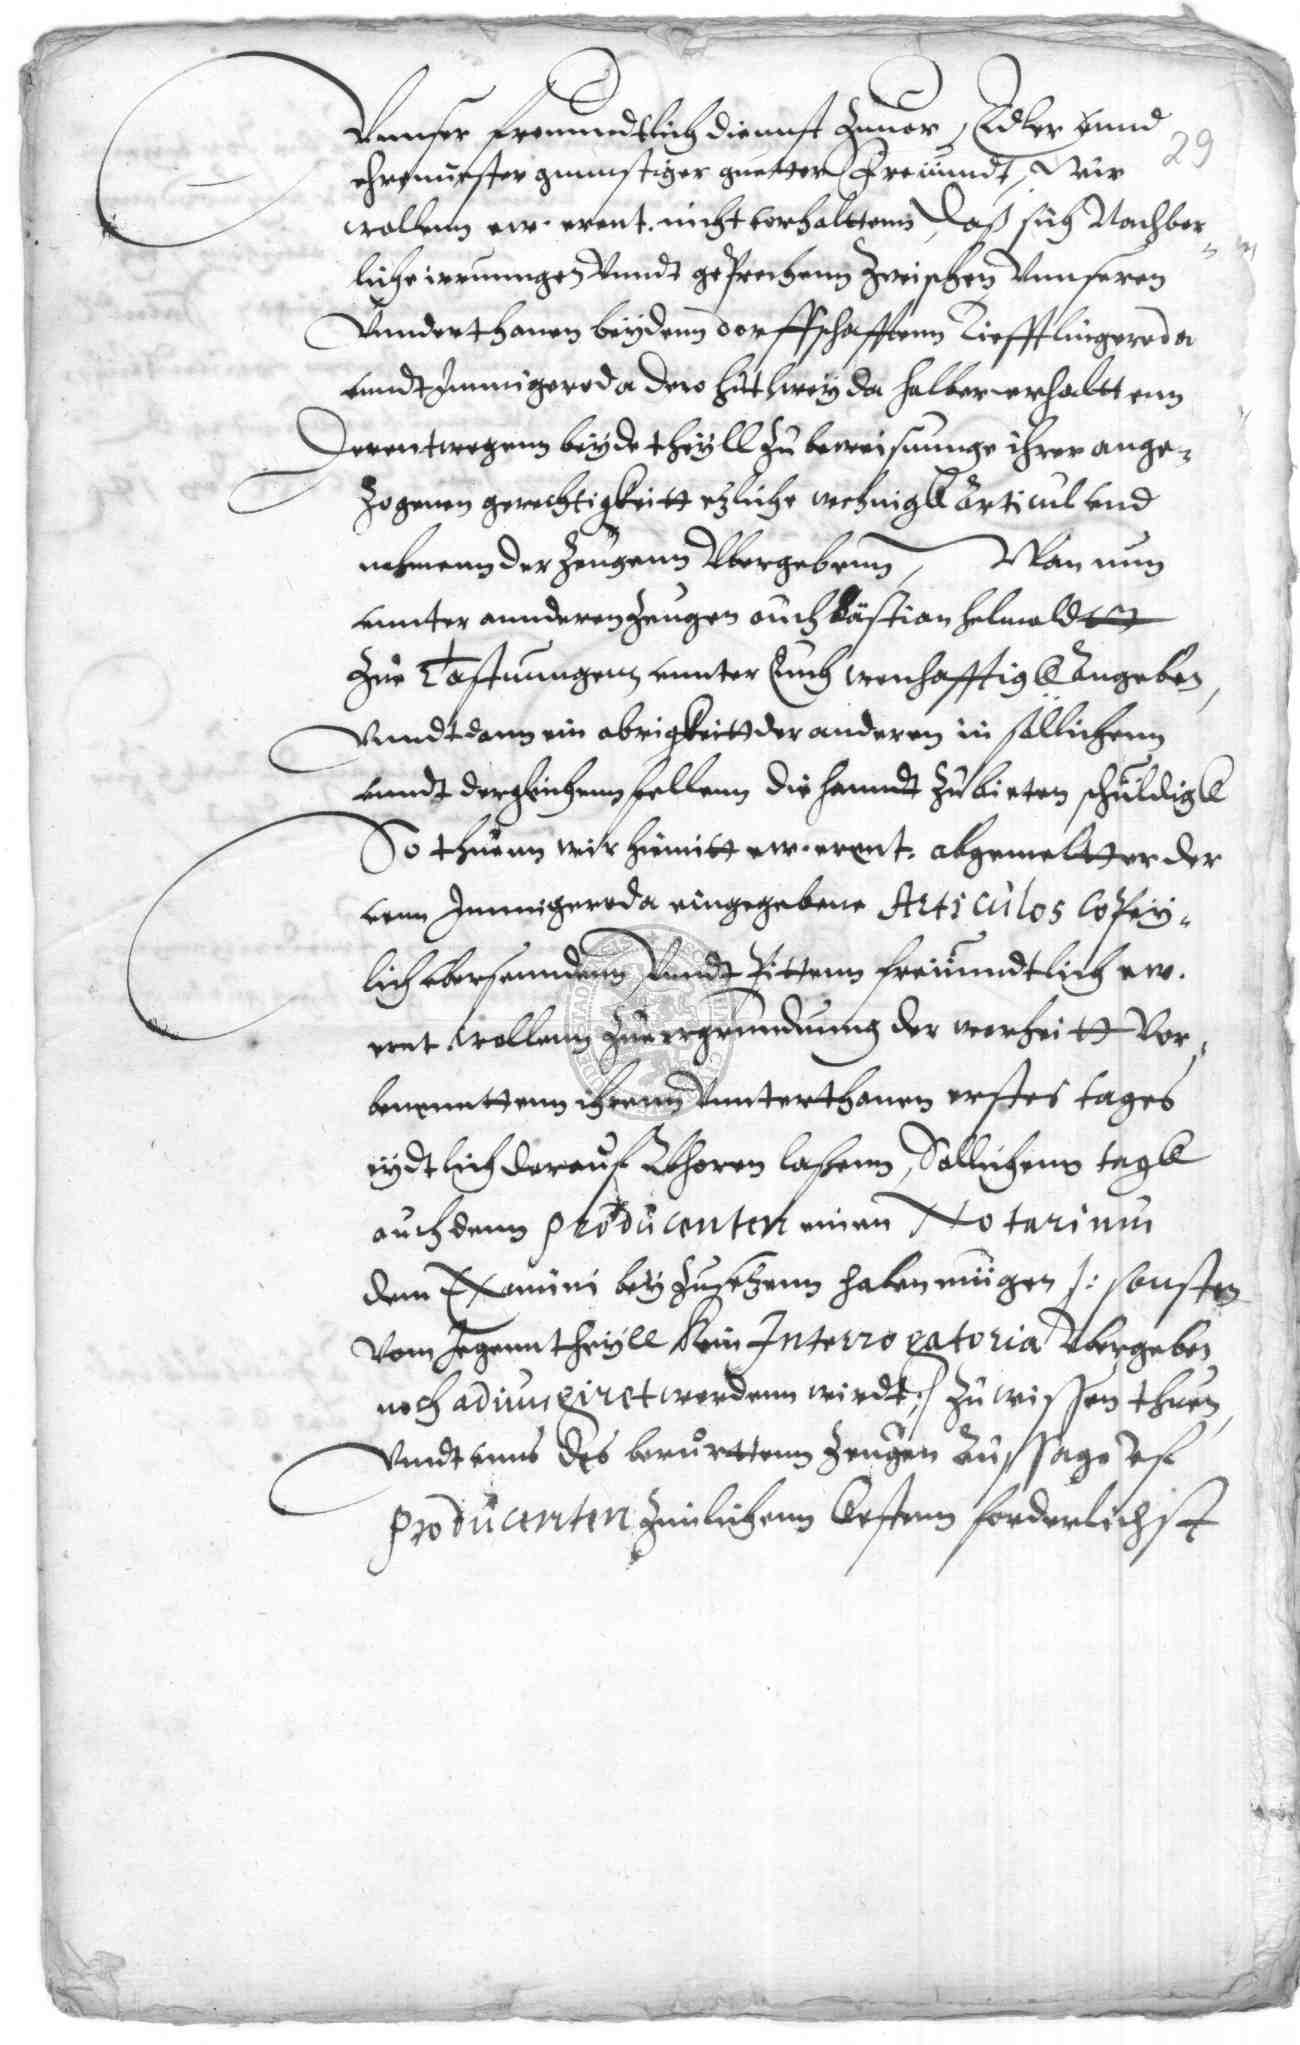 29
Vnnser freundtlich diennst zuuor, Edler vnnd
ehrnuester gunnstiger gueter Freundt, Wir
wollenn ew. ernt. nicht vorhalttenn, Daß sich Nachber-
liche irrunngen Vnndt geprechenn zwischen Vnnseren
Vnnderthanen beydenn dorffschafftenn Tiefftlingeroda
vnndt Immigeroda dero huthweyda halber erhalttenn
Derentwegenn beyde theyll zu beweisunnge ihrer ange-
zogenen gerechtigkeitt etzliche Articul vnd
nahmenn der zeugenn Vbergebenn, Wan nun
vnnter annderen zeugen auch Bastian helmoldt
zue Tastunngenn vnnter Euch wonhafftigk angeben,
Vnndt dann ein obrigkeitt der anderen in sollichenn
vnndt dergleichenn fellenn die hanndt zu bieten schuldigk
So thuenn wir hiemitt ew. ernt. abgemeltter der
vonn Immigeroda eingegebene Articulos copey-
lich vbersenndenn Vnndt bittenn freundtlich ew.
ernt. wollenn zue ergrundung der warheitt Vor-
benenttenn ihrenn Vnnterthanen erstes tages
eydtlich darauf Abhoren lassenn, Sollichenn tagk
auch denn producenten einen Notarium
dem Examini bey zusetzenn haben mügen /: sonsten
vom gegenntheyll kein Interrogatoria Vbergeben
noch adiungiret werdenn wirdt :/ zu wissen thuen,
Vndt vnns des beruorttenn zeugen Aussage vf
producenten zimlichenn Costenn forderlichst